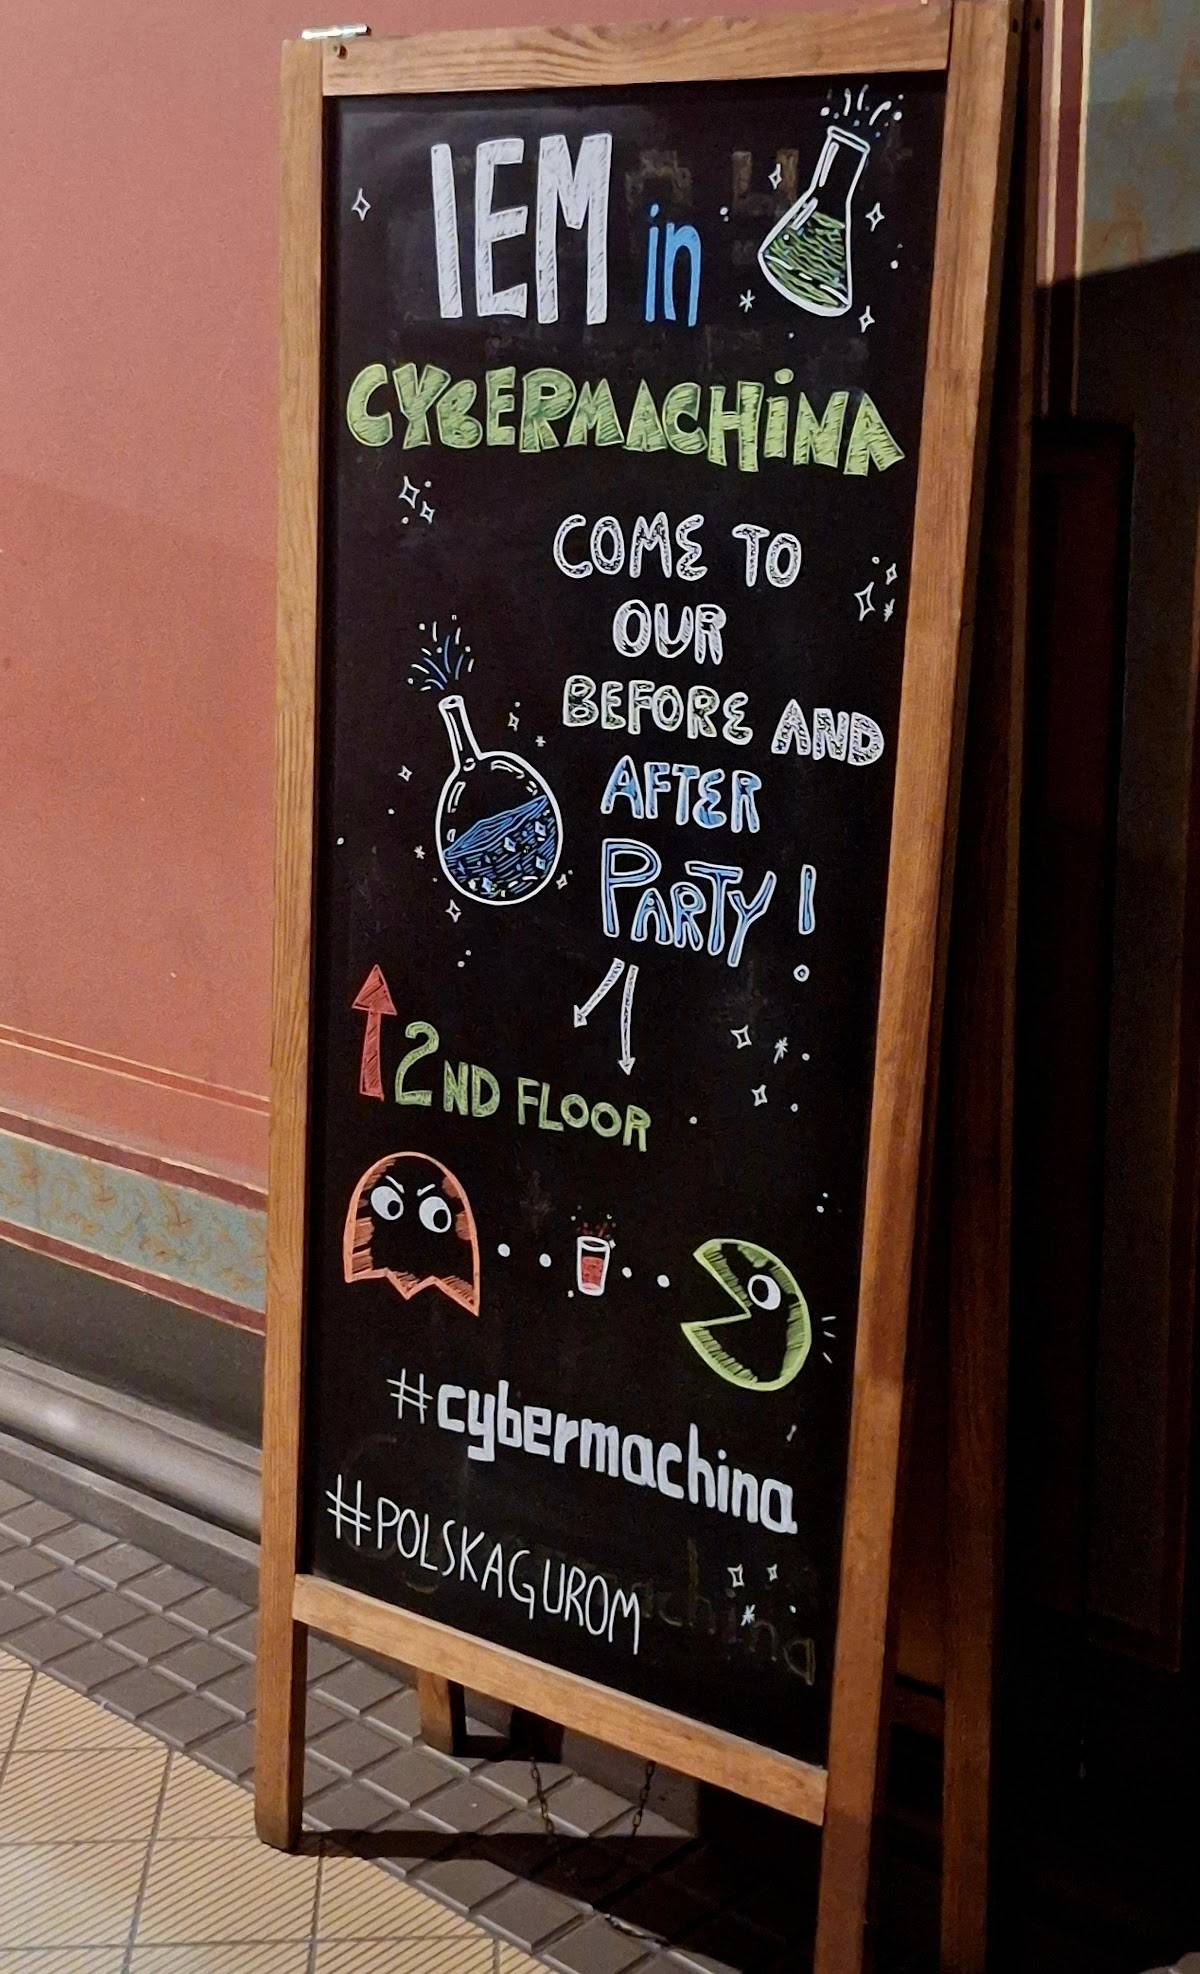 IEM in
CYBERMACHiNA
COME TO
OUR
BEFORE AND
AFTER
PARTY!
2ND FLOOR
#cybermachina
#POLSKAGUROM